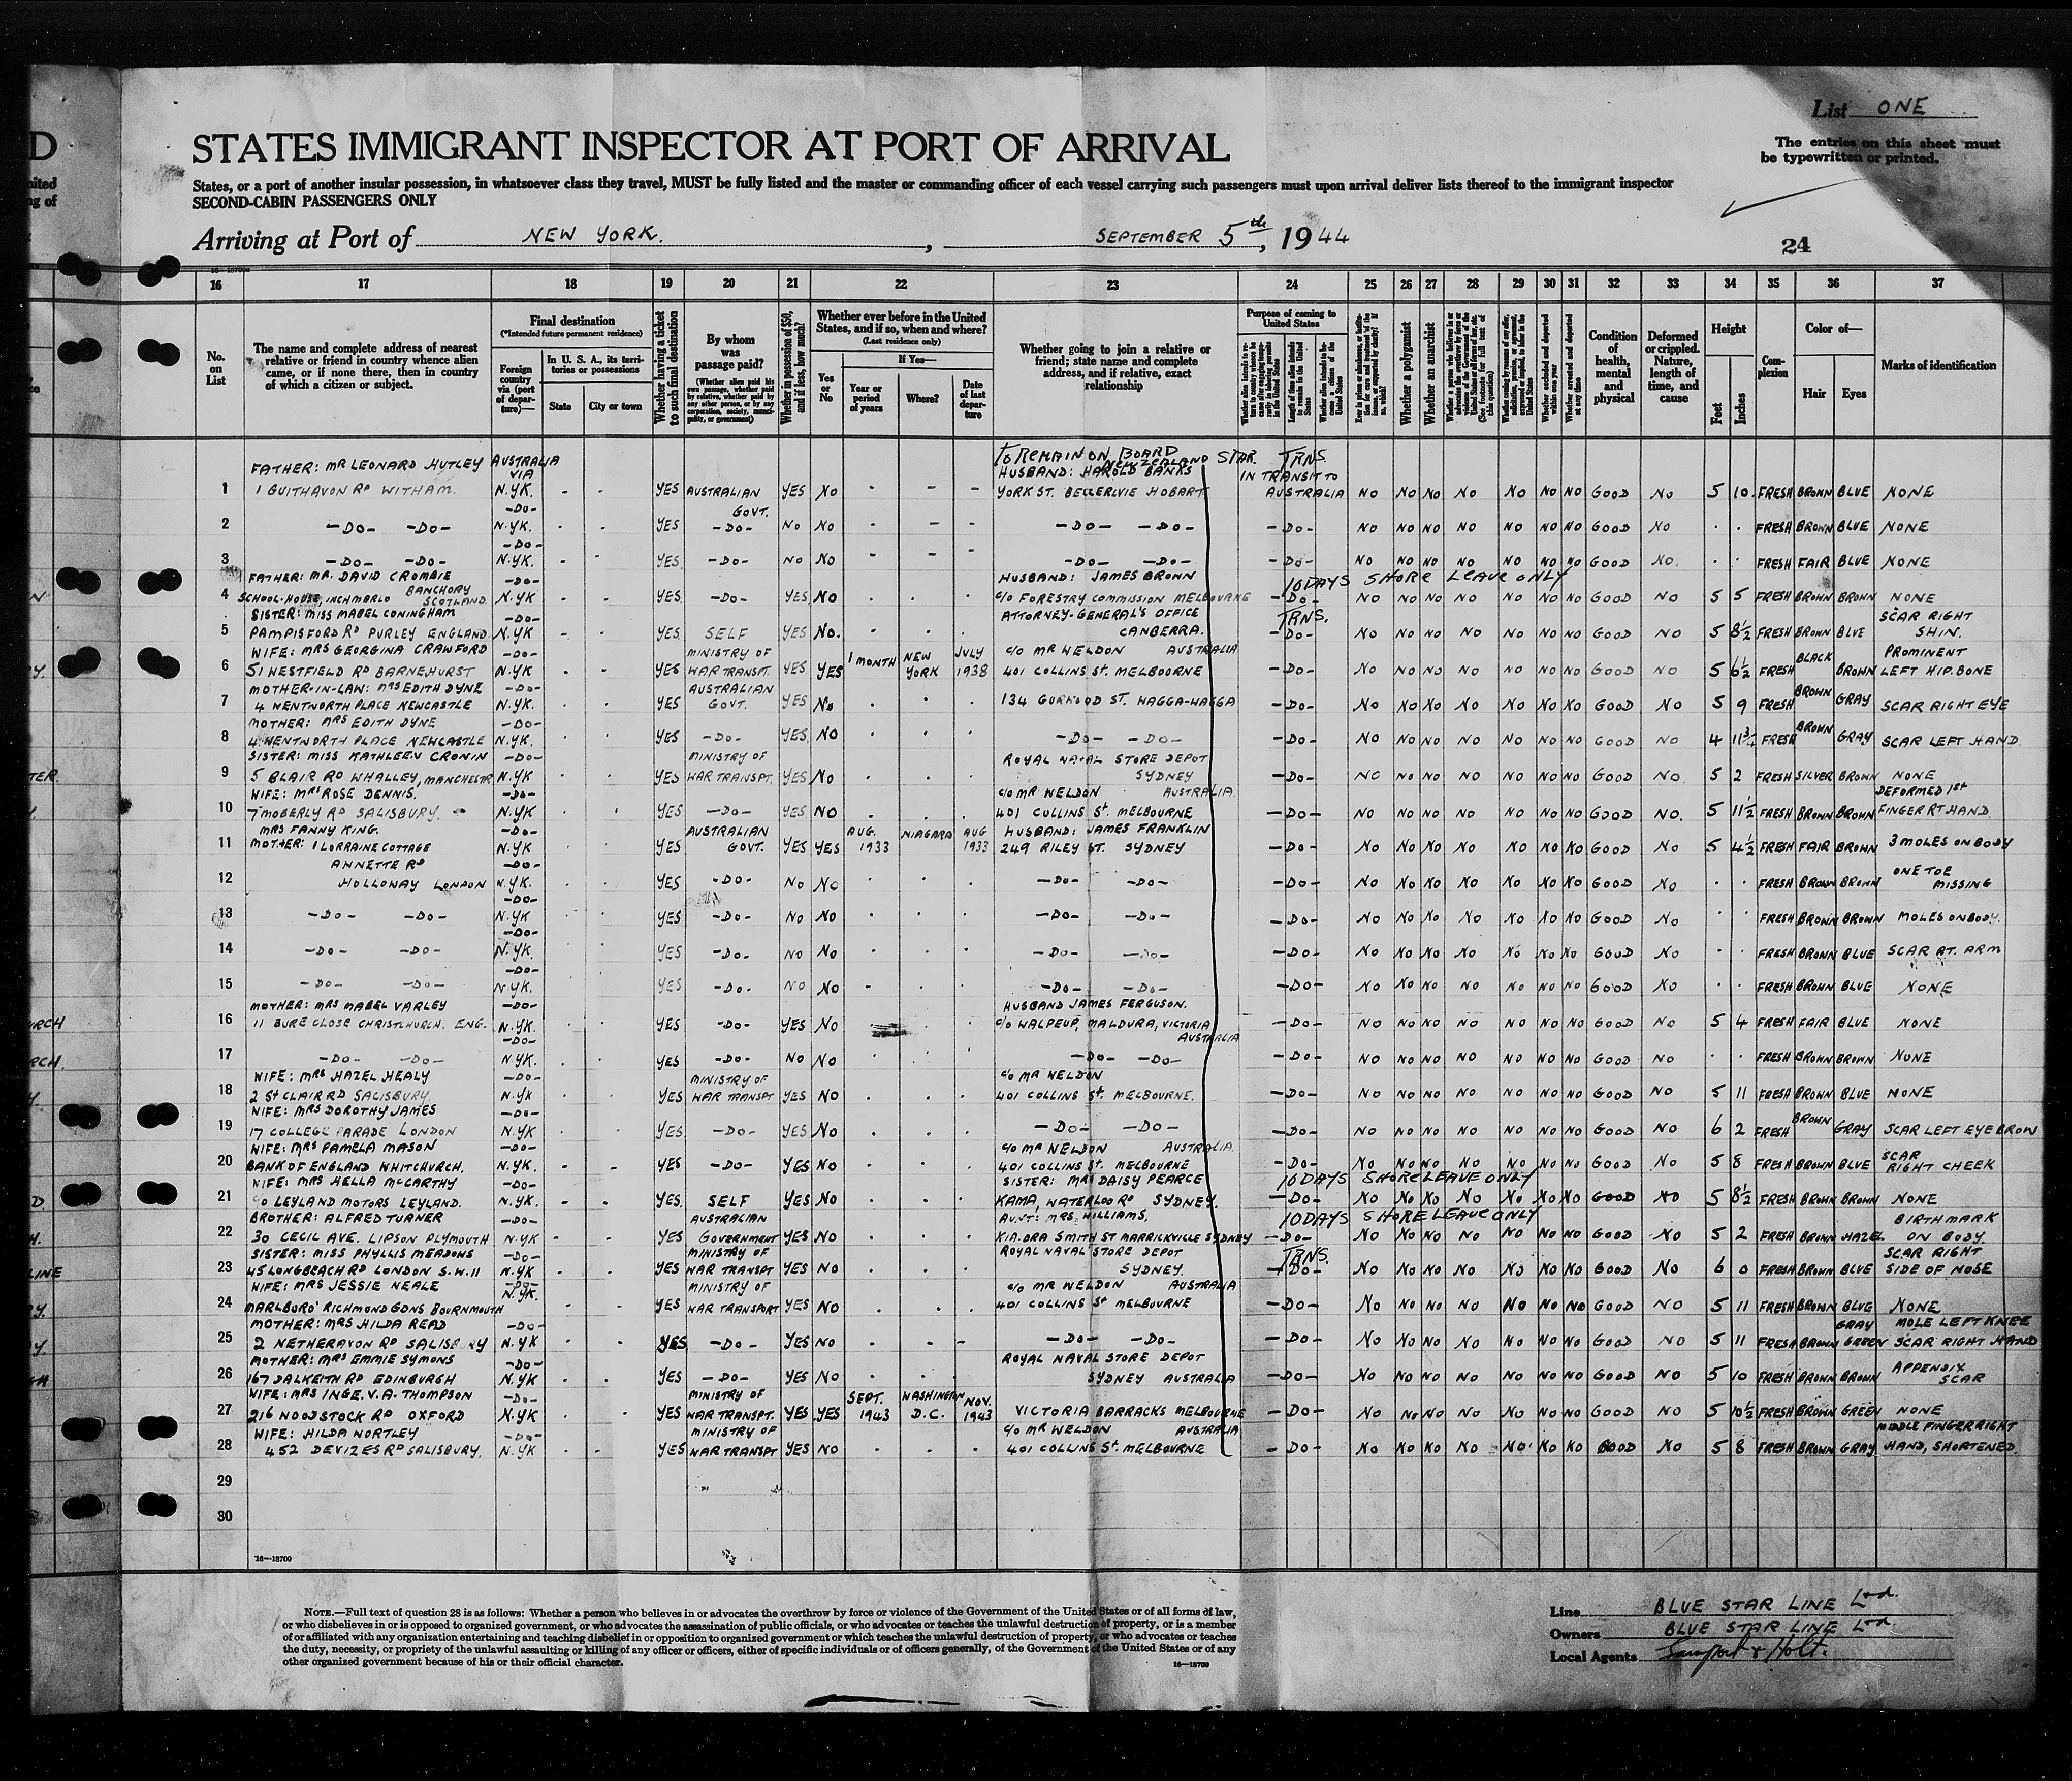 List ONE
The entries on this sheet must
be typewritten or printed.
STATES IMMIGRANT INSPECTOR AT PORT OF ARRIVAL
States, or a port of another insular possession, in whatsoever class they travel, MUST be fully listed and the master or commanding officer of each vessel carrying such passengers must upon arrival deliver lists thereof to the immigrant inspector
SECOND-CABIN PASSENGERS ONLY
Arriving at Port of NEW YORK. , SEPTEMBER 5th, 1944
24
16 17 18 19 20 21 22 23 24 25 26 27 28 29 30 31 32 33 34 35 36 37
No. on List
The name and complete address of nearest relative or friend in country whence alien came, or if none there, then in country of which a citizen or subject.
Final destination
(*Intended future permanent residence)
Foreign country via (port of departure)—
In U. S. A., its territories or possessions
State
City or town
Whether having a ticket to such final destination
By whom was passage paid?
(Whether alien paid his own passage, whether paid by relative, whether paid by any other person, or by any corporation, society, municipality, or government)
Whether in possession of $50, and if less, how much?
Whether ever before in the United States, and if so, when and where?
(Last residence only)
Yes or No
If Yes—
Year or period of years
Where?
Date of last departure
Whether going to join a relative or friend; state name and complete address, and if relative, exact relationship
Purpose of coming to United States
Whether a polygamist
Whether an anarchist
Condition of health, mental and physical
Deformed or crippled. Nature, length of time, and cause
Height
Feet
Inches
Complexion
Color of—
Hair
Eyes
Marks of identification
TO REMAIN ON BOARD NEW ZEALAND STAR. TRNS.
FATHER: MR LEONARD HUTLEY AUSTRALIA VIA HUSBAND: HAROLD BANKS IN TRANSIT TO
1 1 GUITHAVON RD WITHAM. N.YK. - - YES AUSTRALIAN GOVT. YES NO - - - YORK ST. BELLERIVE HOBART AUSTRALIA NO NO NO NO NO NO NO GOOD NO 5 10 FRESH BROWN BLUE NONE
2 -DO- -DO- -DO- N.YK. YES -DO- NO NO -DO- -DO- -DO- NO NO NO NO NO NO NO GOOD NO FRESH BROWN BLUE NONE
3 -DO- -DO- -DO- N.YK. YES -DO- NO NO -DO- -DO- -DO- NO NO NO NO NO NO NO GOOD NO. FRESH FAIR BLUE NONE
FATHER: MR. DAVID CROMBIE -DO- HUSBAND: JAMES BROWN 10 DAYS SHORE LEAVE ONLY
4 SCHOOL-HOUSE, INCHMARLO BANCHORY SCOTLAND N.YK YES -DO- YES NO C/O FORESTRY COMMISSION MELBOURNE -DO- NO NO NO NO NO NO NO GOOD NO 5 5 FRESH BROWN BROWN NONE
SISTER: MISS MABEL CONINGHAM -DO- ATTORNEY-GENERAL'S OFFICE TRNS. SCAR RIGHT
5 PAMPISFORD RD PURLEY ENGLAND. N.YK YES SELF YES NO. CANBERRA. -DO- NO NO NO NO NO NO NO GOOD NO 5 8½ FRESH BROWN BLUE SHIN.
WIFE: MRS GEORGINA CRAWFORD -DO- MINISTRY OF 1 MONTH NEW JULY C/O MR WELDON AUSTRALIA BLACK PROMINENT
6 51 WESTFIELD RD BARNEHURST N.YK YES WAR TRANSPT. YES YES YORK 1938 401 COLLINS ST. MELBOURNE -DO- NO NO NO NO NO NO NO GOOD NO 5 6½ FRESH BROWN LEFT HIP.BONE
MOTHER-IN-LAW: MRS EDITH DYNE -DO- AUSTRALIAN
7 4 WENTWORTH PLACE NEWCASTLE N.YK. YES GOVT. YES NO 134 GURWOOD ST. WAGGA-WAGGA -DO- NO NO NO NO NO NO NO GOOD NO 5 9 FRESH BROWN GRAY SCAR RIGHT EYE
MOTHER: MRS EDITH DYNE -DO-
8 4 WENTWORTH PLACE NEWCASTLE N.YK. YES -DO- YES NO -DO- -DO- -DO- NO NO NO NO NO NO NO GOOD NO 4 11¾ FRESH BROWN GRAY SCAR LEFT HAND
SISTER: MISS KATHLEEN CRONIN -DO- MINISTRY OF ROYAL NAVAL STORE DEPOT
9 5 BLAIR RD WHALLEY, MANCHESTR N.YK YES WAR TRANSPT. YES NO SYDNEY -DO- NO NO NO NO NO NO NO GOOD NO. 5 2 FRESH SILVER BROWN NONE
WIFE: MRS ROSE DENNIS. -DO- C/O MR WELDON AUSTRALIA DEFORMED 1st
10 7 MOBERLY RD SALISBURY. N.YK YES -DO- YES NO 401 COLLINS St. MELBOURNE -DO- NO NO NO NO NO NO NO GOOD NO. 5 11½ FRESH BROWN BROWN FINGER RT HAND.
MRS FANNY KING. -DO- AUSTRALIAN AUG. NIAGARA AUG HUSBAND: JAMES FRANKLIN
11 MOTHER: 1 LORRAINE COTTAGE N.YK YES GOVT. YES YES 1933 1933 249 RILEY ST. SYDNEY -DO- NO NO NO NO NO NO NO GOOD NO 5 4½ FRESH FAIR BROWN 3 MOLES ON BODY
ANNETTE RD -DO- ONE TOE
12 HOLLOWAY LONDON N.YK. YES -DO- NO NO -DO- -DO- -DO- NO NO NO NO NO NO NO GOOD NO FRESH BROWN BROWN MISSING
13 -DO- -DO- -DO- N.YK YES -DO- NO NO -DO- -DO- -DO- NO NO NO NO NO NO NO GOOD NO FRESH BROWN BROWN MOLES ON BODY.
14 -DO- -DO- -DO- N.YK. YES -DO- NO NO -DO- -DO- -DO- NO NO NO NO NO NO NO GOOD NO FRESH BROWN BLUE SCAR RT. ARM
15 -DO- -DO- -DO- N.YK. YES -DO- NO NO -DO- -DO- -DO- NO NO NO NO NO NO NO GOOD NO FRESH BROWN BLUE NONE
MOTHER: MRS MABEL VARLEY -DO- HUSBAND JAMES FERGUSON.
16 11 BURE CLOSE CHRISTCHURCH. ENG. N.YK. YES -DO- YES NO C/O WALPEUP, MALDURA, VICTORIA AUSTRALIA -DO- NO NO NO NO NO NO NO GOOD NO 5 4 FRESH FAIR BLUE NONE
17 -DO- -DO- -DO- N.YK. YES -DO- NO NO -DO- -DO- -DO- NO NO NO NO NO NO NO GOOD NO FRESH BROWN BROWN NONE
WIFE: MRS HAZEL HEALY -DO- MINISTRY OF C/O MR WELDON
18 2 ST CLAIR RD SALISBURY. N.YK YES WAR TRANSPT YES NO 401 COLLINS St. MELBOURNE. -DO- NO NO NO NO NO NO NO GOOD NO 5 11 FRESH BROWN BLUE NONE
WIFE: MRS DOROTHY JAMES -DO-
19 17 COLLEGE PARADE LONDON N.YK YES. -DO- YES NO -DO- -DO- -DO- NO NO NO NO NO NO NO GOOD NO 6 2 FRESH BROWN GRAY SCAR LEFT EYEBROW
WIFE: MRS PAMELA MASON -DO- C/O MR WELDON AUSTRALIA. SCAR
20 BANK OF ENGLAND WHITCHURCH. N.YK. YES -DO- YES NO 401 COLLINS St. MELBOURNE -DO- NO NO NO NO NO NO NO GOOD NO 5 8 FRESH BROWN BLUE RIGHT CHEEK
WIFE: MRS HELLA McCARTHY -DO- SISTER: MRS DAISY PEARCE 10 DAYS SHORE LEAVE ONLY
21 C/O LEYLAND MOTORS LEYLAND. N.YK. YES. SELF YES NO KAMA, WATERLOO RD SYDNEY. -DO- NO NO NO NO NO NO NO GOOD NO 5 8½ FRESH BROWN BROWN NONE
BROTHER: ALFRED TURNER -DO- AUSTRALIAN AUNT: MRS. WILLIAMS. 10 DAYS SHORE LEAVE ONLY BIRTHMARK
22 30 CECIL AVE. LIPSON PLYMOUTH N.YK YES GOVERNMENT YES NO KIA.ORA SMITH ST MARRICKVILLE SYDNEY -DO- NO NO NO NO NO NO NO GOOD NO 5 2 FRESH BROWN HAZEL ON BODY.
SISTER: MISS PHYLLIS MEADONS -DO- MINISTRY OF ROYAL NAVAL STORE DEPOT TRNS. SCAR RIGHT
23 45 LONGBEACH RD LONDON S.W.11 N.YK YES WAR TRANSPT YES NO SYDNEY. -DO- NO NO NO NO NO NO NO GOOD NO 6 0 FRESH BROWN BLUE SIDE OF NOSE
WIFE: MRS JESSIE NEALE -DO- N.YK. MINISTRY OF C/O MR WELDON AUSTRALIA
24 MARLBORO' RICHMOND GDNS BOURNMOUTH YES WAR TRANSPORT YES NO 401 COLLINS St MELBOURNE -DO- NO NO NO NO NO NO NO GOOD NO 5 11 FRESH BROWN BLUE NONE
MOTHER: MRS HILDA READ -DO- GRAY MOLE LEFT KNEE
25 2 NETHERAVON RD SALISBURY N.YK YES -DO- YES NO -DO- -DO- -DO- NO NO NO NO NO NO NO GOOD NO 5 11 FRESH BROWN GREEN SCAR RIGHT HAND
MOTHER: MRS EMMIE SYMONS -DO- ROYAL NAVAL STORE DEPOT APPENDIX
26 167 DALKEITH RD EDINBURGH N.YK YES -DO- YES NO SYDNEY AUSTRALIA -DO- NO NO NO NO NO NO NO GOOD NO 5 10 FRESH BROWN BROWN SCAR
WIFE: MRS INGE. V. A. THOMPSON -DO- MINISTRY OF SEPT. WASHINGTON NOV.
27 216 WOODSTOCK RD OXFORD N.YK YES WAR TRANSPT. YES YES 1943 D.C. 1943 VICTORIA BARRACKS MELBOURNE -DO- NO NO NO NO NO NO NO GOOD NO 5 10½ FRESH BROWN GREEN NONE
WIFE: HILDA NORTLEY -DO- MINISTRY OF C/O MR WELDON AUSTRALIA MIDDLE FINGER RIGHT
28 452 DEVIZES RD SALISBURY. N.YK YES WAR TRANSPT YES NO 401 COLLINS St. MELBOURNE -DO- NO NO NO NO NO NO NO GOOD NO 5 8 FRESH BROWN GRAY HAND, SHORTENED.
29
30
16—18709
NOTE.—Full text of question 28 is as follows: Whether a person who believes in or advocates the overthrow by force or violence of the Government of the United States or of all forms of law,
or who disbelieves in or is opposed to organized government, or who advocates the assassination of public officials, or who advocates or teaches the unlawful destruction of property, or is a member
of or affiliated with any organization entertaining and teaching disbelief in or opposition to organized government or which teaches the unlawful destruction of property, or who advocates or teaches
the duty, necessity, or propriety of the unlawful assaulting or killing of any officer or officers, either of specific individuals or of officers generally, of the Government of the United States or of any
other organized government because of his or their official character.
16—18709
Line BLUE STAR LINE Ltd.
Owners BLUE STAR LINE Ltd.
Local Agents Lamport & Holt.